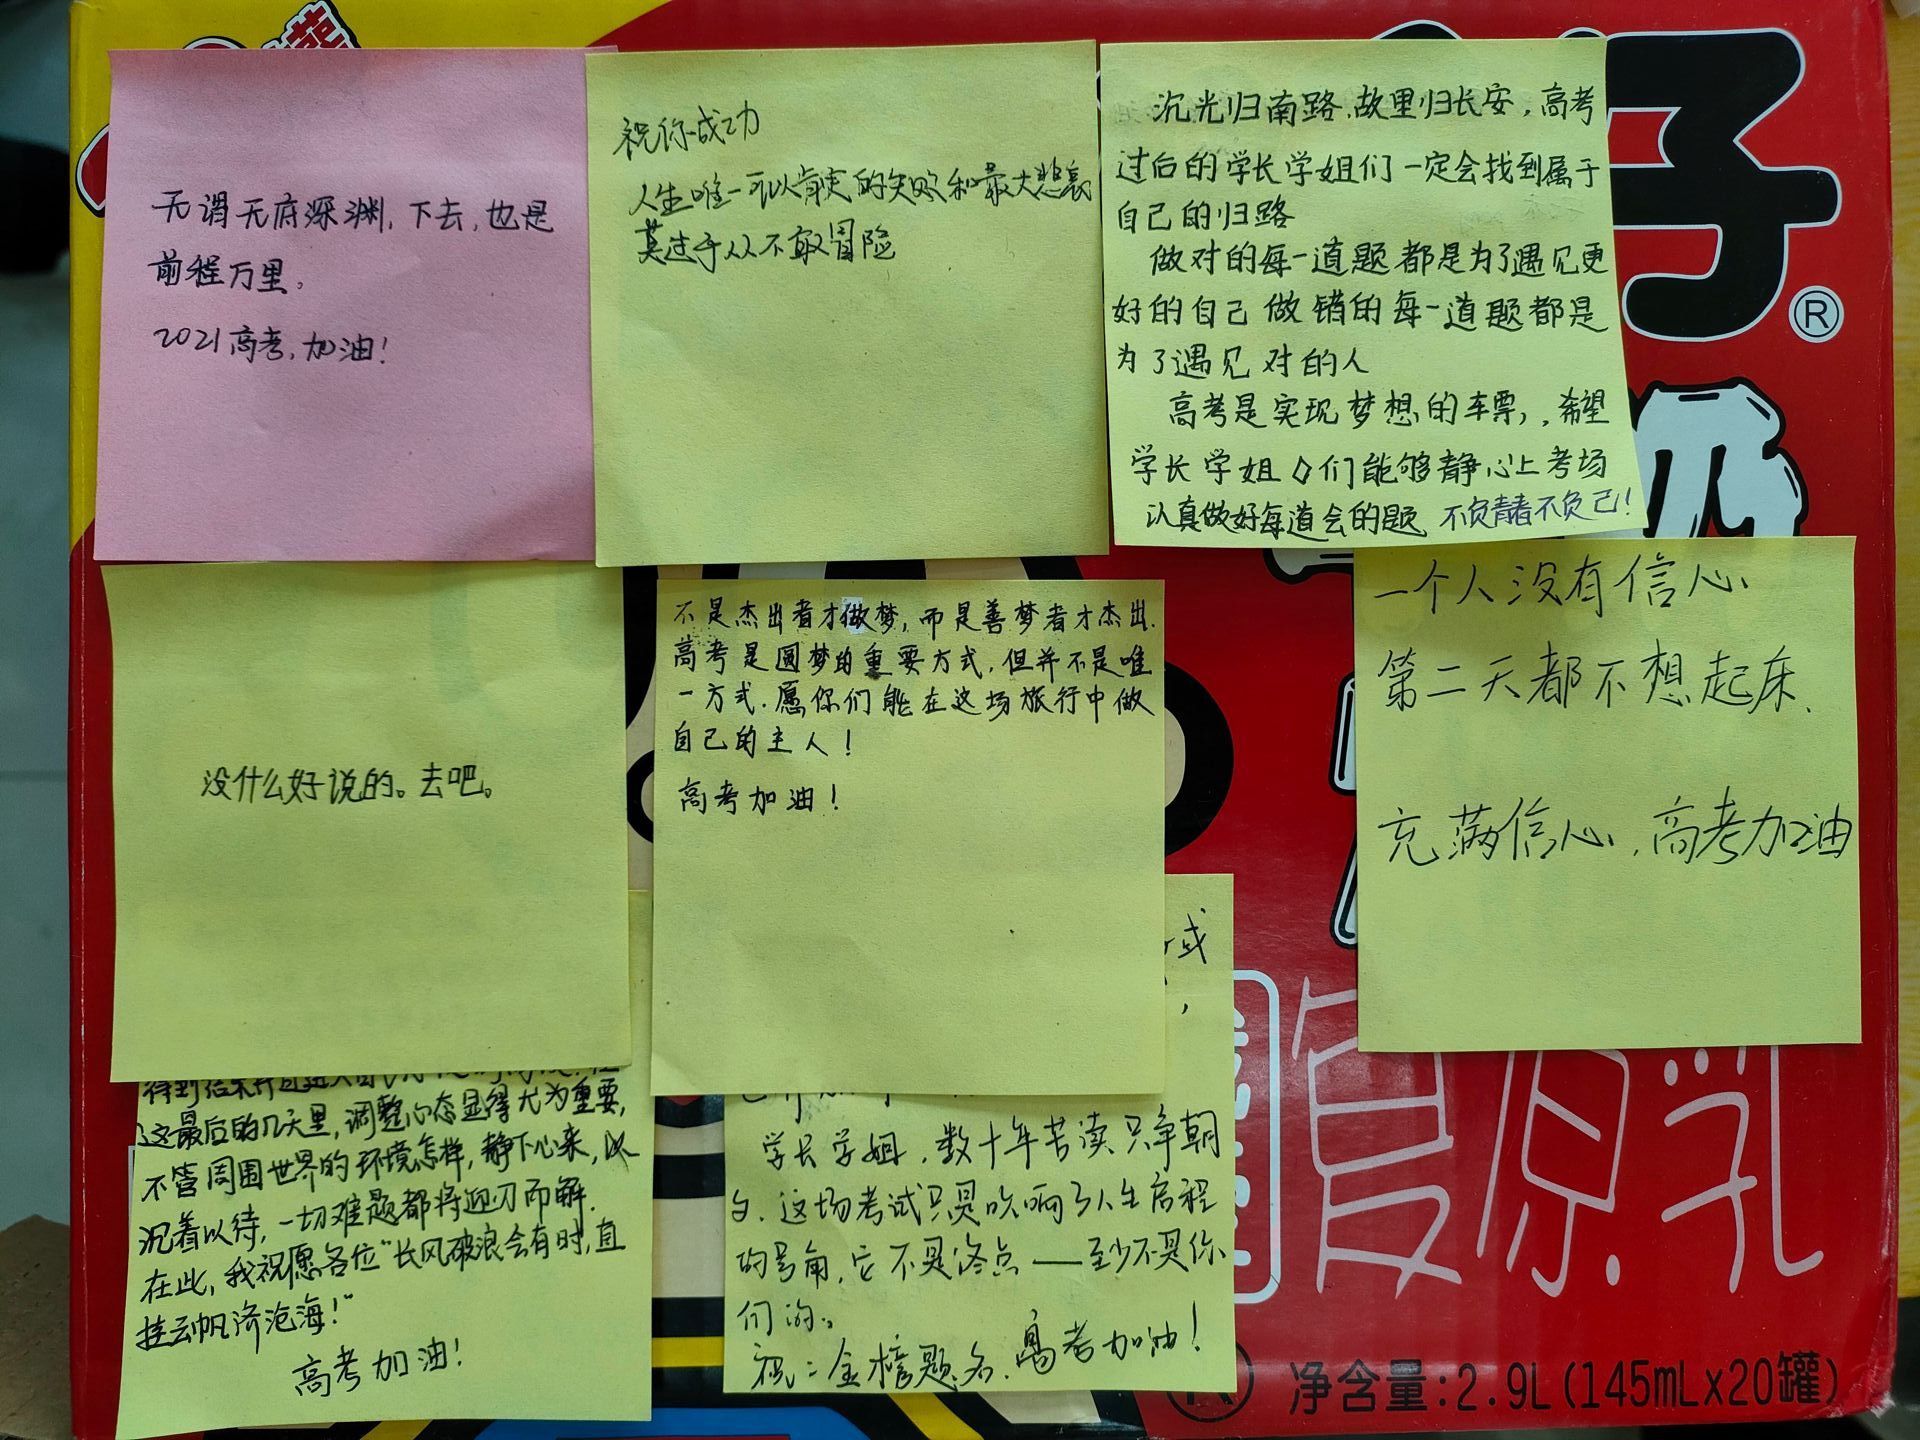 无谓无底深渊，下去，也是
前程万里。
2021高考，加油！
祝你成功
人生唯一可以肯定的失败和最大悲哀
莫过于从不敢冒险
沉光归南路，故里归长安，高考
过后的学长学姐们一定会找到属于
自己的归路
做对的每一道题都是为了遇见更
好的自己 做错的每一道题都是
为了遇见对的人
高考是实现梦想的车票，，希望
学长学姐们能够静心上考场
认真做好每道会的题 不负青春不负己！
子
®
没什么好说的。去吧。
不是杰出者才做梦，而是善梦者才杰出.
高考是圆梦的重要方式，但并不是唯
一方式.愿你们能在这场旅行中做
自己的主人！
高考加油！
一个人没有信心、
第二天都不想起床.
充满信心，高考加油
这最后的几天里，调整心态显得尤为重要，
不管周围世界的环境怎样，静下心来，以
沉着以待，一切难题都将迎刃而解.
在此，我祝愿各位“长风破浪会有时，直
挂云帆济沧海！”
高考加油！
或
，
学长学姐，数十年苦读只争朝
夕.这场考试只是吹响了人生启程
的号角，它不是终点——至少不是你
们的。
祝：金榜题名，高考加油！
复原乳
净含量:2.9L(145mLx20罐)